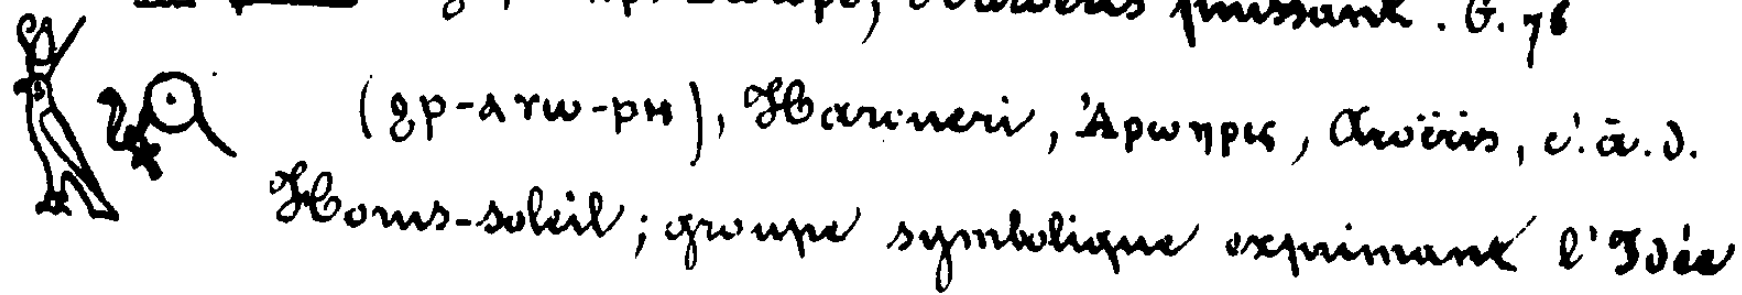 puissant. G. 76
(ϩⲣ-ⲁⲩⲱ-ⲣⲏ), Haroueri, Ἀρωηρις, Aroëris, c. à. d.
Horus-soleil; groupe symbolique exprimant l'Idée